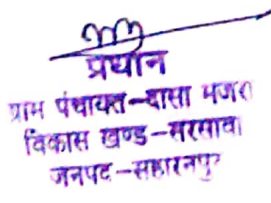 प्रधान
ग्राम पंचायत-दासा मजरा
विकास खण्ड-सरसावा
जनपद-सहारनपुर